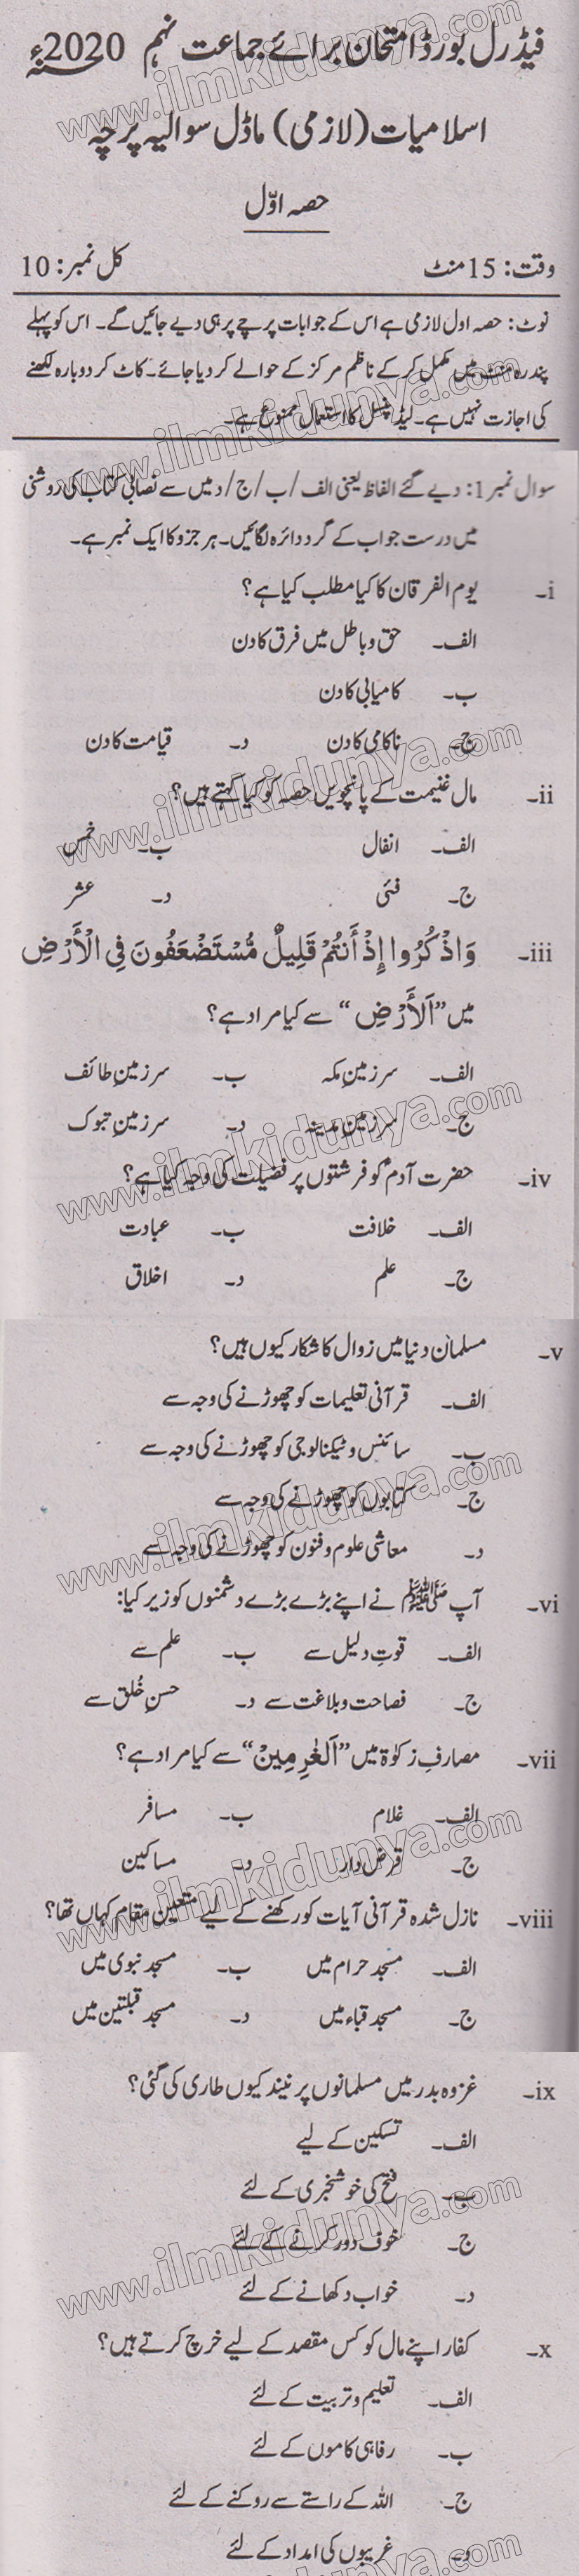 فیڈرل بورڈ امتحان برائے جماعت نہم 2020ء
اسلامیات (لازمی) ماڈل سوالیہ پرچہ
حصہ اوّل
وقت: 15 منٹ کل نمبر: 10
نوٹ: حصہ اول لازمی ہے اس کے جوابات پرچے پر ہی دیے جائیں گے۔ اس کو پہلے
پندرہ منٹ میں مکمل کر کے ناظم مرکز کے حوالے کر دیا جائے۔ کاٹ کر دوبارہ لکھنے
کی اجازت نہیں ہے۔ لیڈ پنسل کا استعمال ممنوع ہے۔
سوال نمبر 1: دیے گئے الفاظ یعنی الف/ب/ج/د میں سے نصابی کتاب کی روشنی
میں درست جواب کے گرد دائرہ لگائیں۔ ہر جزو کا ایک نمبر ہے۔
i۔ یوم الفرقان کا کیا مطلب کیا ہے؟
الف۔ حق و باطل میں فرق کا دن
ب۔ کامیابی کا دن
ج۔ ناکامی کا دن د۔ قیامت کا دن
ii۔ مال غنیمت کے پانچویں حصہ کو کیا کہتے ہیں؟
الف۔ انفال ب۔ خمس
ج۔ فئی د۔ عشر
iii۔ وَاذْكُرُوا إِذْ أَنتُمْ قَلِيلٌ مُّسْتَضْعَفُونَ فِي الْأَرْضِ
میں ”اَلأَرْضِ“ سے کیا مراد ہے؟
الف۔ سرزمینِ مکہ ب۔ سرزمینِ طائف
ج۔ سرزمینِ مدینہ د۔ سرزمینِ تبوک
iv۔ حضرت آدمؑ کو فرشتوں پر فضیلت کی وجہ کیا ہے؟
الف۔ خلافت ب۔ عبادت
ج۔ علم د۔ اخلاق
v۔ مسلمان دنیا میں زوال کا شکار کیوں ہیں؟
الف۔ قرآنی تعلیمات کو چھوڑنے کی وجہ سے
ب۔ سائنس و ٹیکنالوجی کو چھوڑنے کی وجہ سے
ج۔ کتابوں کو چھوڑنے کی وجہ سے
د۔ معاشی علوم و فنون کو چھوڑنے کی وجہ سے
vi۔ آپ ﷺ نے اپنے بڑے بڑے دشمنوں کو زیر کیا:
الف۔ قوتِ دلیل سے ب۔ علم سے
ج۔ فصاحت و بلاغت سے د۔ حسنِ خُلق سے
vii۔ مصارفِ زکوٰۃ میں ”اَلغٰرِمِیْنَ“ سے کیا مراد ہے؟
الف۔ غلام ب۔ مسافر
ج۔ قرض دار د۔ مساکین
viii۔ نازل شدہ قرآنی آیات کو رکھنے کے لیے متعین مقام کہاں تھا؟
الف۔ مسجد حرام میں ب۔ مسجد نبوی میں
ج۔ مسجد قباء میں د۔ مسجد قبلتین میں
ix۔ غزوہ بدر میں مسلمانوں پر نیند کیوں طاری کی گئی؟
الف۔ تسکین کے لیے
ب۔ فتح کی خوشخبری کے لئے
ج۔ خوف دور کرنے کے لئے
د۔ خواب دکھانے کے لئے
x۔ کفار اپنے مال کو کس مقصد کے لیے خرچ کرتے ہیں؟
الف۔ تعلیم و تربیت کے لئے
ب۔ رفاہی کاموں کے لئے
ج۔ اللہ کے راستے سے روکنے کے لئے
د۔ غریبوں کی امداد کے لئے
www.ilmkidunya.com
www.ilmkidunya.com
www.ilmkidunya.com
www.ilmkidunya.com
www.ilmkidunya.com
www.ilmkidunya.com
www.ilmkidunya.com